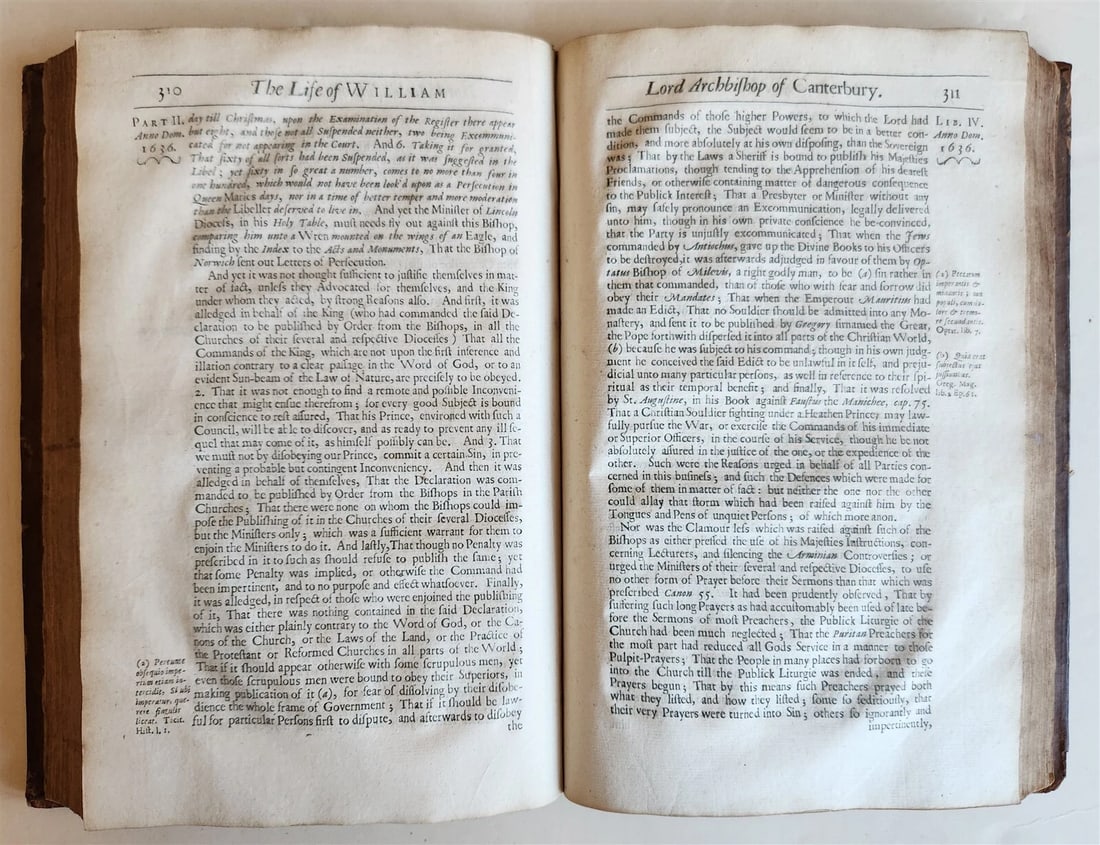 310
The Life of WILLIAM
PART II.
Anno Dom.
1636.
day till Chriſtmas, upon the Examination of the Regiſter there appear
but eight, and thoſe not all Suſpended neither, two being Excommuni-
cated for not appearing in the Court. And 6. Taking it for granted,
That ſixty of all ſorts had been Suſpended, as it was ſuggeſted in the
Libel; yet ſixty in ſo great a number, comes to no more than four in
one hundred, which would not have been look'd upon as a Perſecution in
Queen Maries days, nor in a time of better temper and more moderation
than the Libeller deſerved to live in. And yet the Miniſter of Lincoln
Dioceſs, in his Holy Table, muſt needs fly out againſt this Biſhop,
comparing him unto a Wren mounted on the wings of an Eagle, and
finding by the Index to the Acts and Monuments, That the Biſhop of
Norwich ſent out Letters of Perſecution.
And yet it was not thought ſufficient to juſtifie themſelves in mat-
ter of fact, unleſs they Advocated for themſelves, and the King
under whom they acted, by ſtrong Reaſons alſo. And firſt, it was
alledged in behalf of the King (who had commanded the ſaid De-
claration to be publiſhed by Order from the Biſhops, in all the
Churches of their ſeveral and reſpective Dioceſſes) That all the
Commands of the King, which are not upon the firſt inference and
illation contrary to a clear paſſage in the Word of God, or to an
evident Sun-beam of the Law of Nature, are preciſely to be obeyed.
2. That it was not enough to find a remote and poſſible Inconveni-
ence that might enſue therefrom; for every good Subject is bound
in conſcience to reſt aſſured, That his Prince, environed with ſuch a
Council, will be able to diſcover, and as ready to prevent any ill ſe-
quel that may come of it, as himſelf poſſibly can be. And 3. That
we muſt not by diſobeying our Prince, commit a certain Sin, in pre-
venting a probable but contingent Inconveniency. And then it was
alledged in behalf of themſelves, That the Declaration was com-
manded to be publiſhed by Order from the Biſhops in the Pariſh
Churches; That there were none on whom the Biſhops could im-
poſe the Publiſhing of it in the Churches of their ſeveral Dioceſſes,
but the Miniſters only; which was a ſufficient warrant for them to
enjoin the Miniſters to do it. And laſtly, That though no Penalty was
preſcribed in it to ſuch as ſhould refuſe to publiſh the ſame; yet
that ſome Penalty was implied, or otherwiſe the Command had
been impertinent, and to no purpoſe and effect whatſoever. Finally,
it was alledged, in reſpect of thoſe who were enjoined the publiſhing
of it, That there was nothing contained in the ſaid Declaration,
which was either plainly contrary to the Word of God, or the Ca-
nons of the Church, or the Laws of the Land, or the Practice of
the Proteſtant or Reformed Churches in all parts of the World;
That if it ſhould appear otherwiſe with ſome ſcrupulous men, yet
even thoſe ſcrupulous men were bound to obey their Superiors, in
making publication of it (a), for fear of diſſolving by their diſobe-
dience the whole frame of Government; That if it ſhould be law-
ful for particular Perſons firſt to diſpute, and afterwards to diſobey
the
(a) Pereunte
obſequio impe-
rium etiam in-
tercidit. Si ubi
imperatur, quæ-
rere ſingulis
liceat. Tacit.
Hiſt. l. 1.
Lord Archbiſhop of Canterbury.
311
LIB. IV.
Anno Dom.
1636.
the Commands of thoſe higher Powers, to which the Lord had
made them ſubject, the Subject would ſeem to be in a better con-
dition, and more abſolutely at his own diſpoſing, than the Sovereign
was; That by the Laws a Sheriff is bound to publiſh his Majeſties
Proclamations, though tending to the Apprehenſion of his deareſt
Friends, or otherwiſe containing matter of dangerous conſequence
to the Publick Intereſt; That a Presbyter or Miniſter without any
ſin, may ſafely pronounce an Excommunication, legally delivered
unto him, though in his own private conſcience he be convinced,
that the Party is unjuſtly excommunicated; That when the Jews
commanded by Antiochus, gave up the Divine Books to his Officers
to be deſtroyed, it was afterwards adjudged in favour of them by Op-
tatus Biſhop of Milevis, a right godly man, to be (a) ſin rather in
them that commanded, than of thoſe who with fear and ſorrow did
obey their Mandates; That when the Emperour Mauritius had
made an Edict, That no Souldier ſhould be admitted into any Mo-
naſtery, and ſent it to be publiſhed by Gregory ſirnamed the Great,
the Pope forthwith diſperſed it into all parts of the Chriſtian World,
(b) becauſe he was ſubject to his command; though in his own judg-
ment he conceived the ſaid Edict to be unlawful in it ſelf, and preju-
dicial unto many particular perſons, as well in reference to their ſpi-
ritual as their temporal benefit; and finally, That it was reſolved
by St. Auguſtine, in his Book againſt Fauſtus the Manichee, cap. 75.
That a Chriſtian Souldier fighting under a Heathen Prince, may law-
fully purſue the War, or exerciſe the Commands of his immediate
or Superior Officers, in the courſe of his Service, though he be not
abſolutely aſſured in the juſtice of the one, or the expedience of the
other. Such were the Reaſons urged in behalf of all Parties con-
cerned in this buſineſs; and ſuch the Defences which were made for
ſome of them in matter of fact: but neither the one nor the other
could allay that ſtorm which had been raiſed againſt him by the
Tongues and Pens of unquiet Perſons; of which more anon.
Nor was the Clamour leſs which was raiſed againſt ſuch of the
Biſhops as either preſſed the uſe of his Majeſties Inſtructions, con-
cerning Lecturers, and ſilencing the Arminian Controverſies; or
urged the Miniſters of their ſeveral and reſpective Dioceſſes, to uſe
no other form of Prayer before their Sermons than that which was
preſcribed Canon 55. It had been prudently obſerved, That by
ſuffering ſuch long Prayers as had accuſtomably been uſed of late be-
fore the Sermons of moſt Preachers, the Publick Liturgie of the
Church had been much neglected; That the Puritan Preachers for
the moſt part had reduced all Gods Service in a manner to thoſe
Pulpit-Prayers; That the People in many places had forborn to go
into the Church till the Publick Liturgie was ended, and theſe
Prayers begun; That by this means ſuch Preachers prayed both
what they liſted, and how they liſted; ſome ſo ſeditiouſly, that
their very Prayers were turned into Sin; others ſo ignorantly and
impertinently,
(a) Peccatum
imperantis &
Optat. lib. 7.
(b) Quia erat
ſubjectus ejus
juſſionibus.
Greg. Mag.